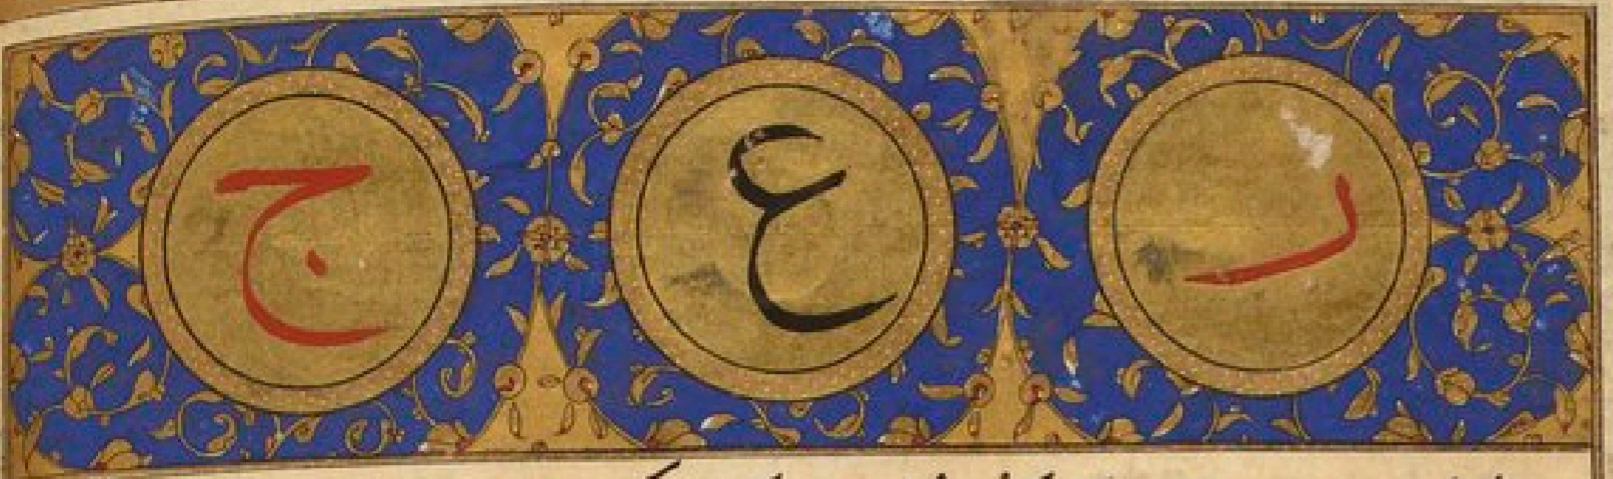 ر ع ج